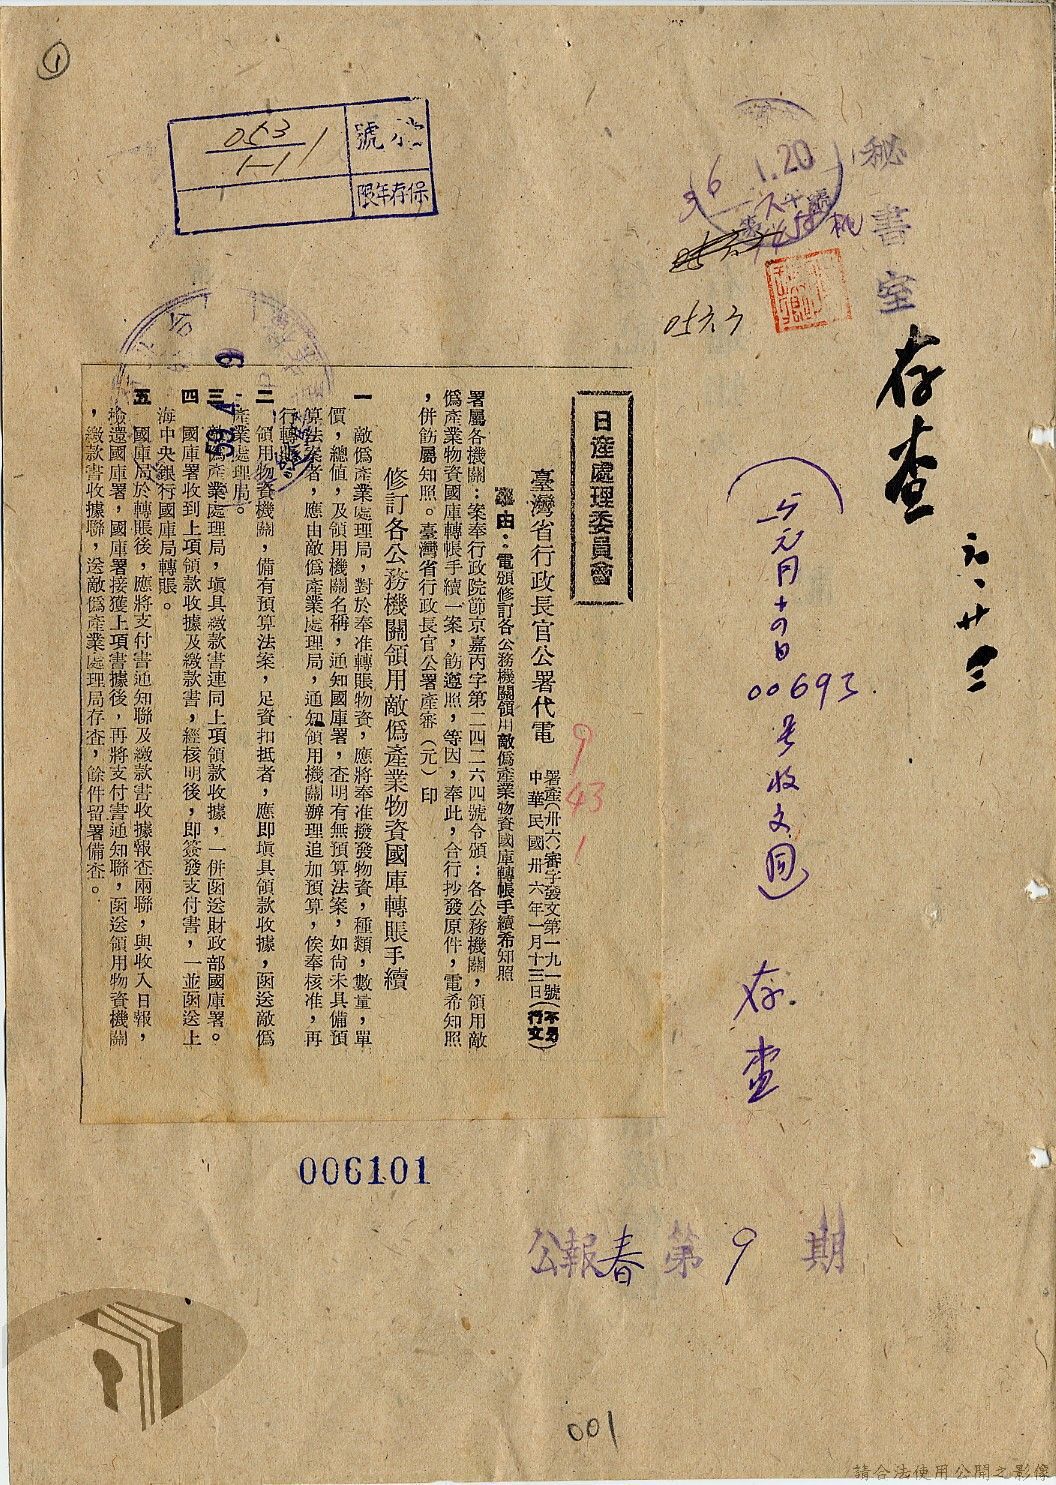 1
053
1-1
1
號
保存年限
36 1.20
秘書室
053.3
存查
元、廿三
元月十四日
00693
号收文同
存查
日產處理委員會
臺灣省行政長官公署代電
署產(卅六)審字發文第一九一號(不另行文)
中華民國卅六年一月十三日
事由：電頒修訂各公務機關領用敵偽產業物資國庫轉帳手續希知照
署屬各機關：案奉行政院節京嘉丙字第二四二六四號令頒：各公務機關，領用敵
偽產業物資國庫轉帳手續一案，飭遵照，等因，奉此，合行抄發原件，電希知照
，併飭屬知照。臺灣省行政長官公署產審（元）印
修訂各公務機關領用敵偽產業物資國庫轉賬手續
一　敵偽產業處理局，對於奉准轉賬物資，應將奉准撥發物資，種類，數量，單
價，總值，及領用機關名稱，通知國庫署，查明有無預算法案，如尚未具備預
算法案者，應由敵偽產業處理局，通知領用機關辦理追加預算，俟奉核准，再
行轉賬。
二　領用物資機關，備有預算法案，足資扣抵者，應即塡具領款收據，函送敵偽
產業處理局。
三　敵偽產業處理局，塡具繳款書連同上項領款收據，一併函送財政部國庫署。
四　國庫署收到上項領款收據及繳款書，經核明後，即簽發支付書，一並函送上
海中央銀行國庫局轉賬。
五　國庫局於轉賬後，應將支付書通知聯及繳款書收據報查兩聯，與收入日報，
檢還國庫署，國庫署接獲上項書據後，再將支付書通知聯，函送領用物資機關
，繳款書收據聯，送敵偽產業處理局存查，餘件留署備查。
59.4.9
9
43
1
006101
公報春第9期
001
請合法使用公開之影像